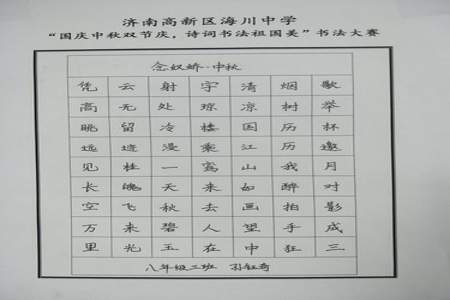 济南高新区海川中学
“国庆中秋双节庆，诗词书法祖国美”书法大赛
念奴娇·中秋
凭高眺远见长空万里
云无留迹桂魄飞来光
射处冷浸一天秋碧玉
宇琼楼乘鸾来去人在
清凉国江山如画望中
烟树历历我醉拍手狂
歌举杯邀月对影成三
八年级三班 孙钰奇